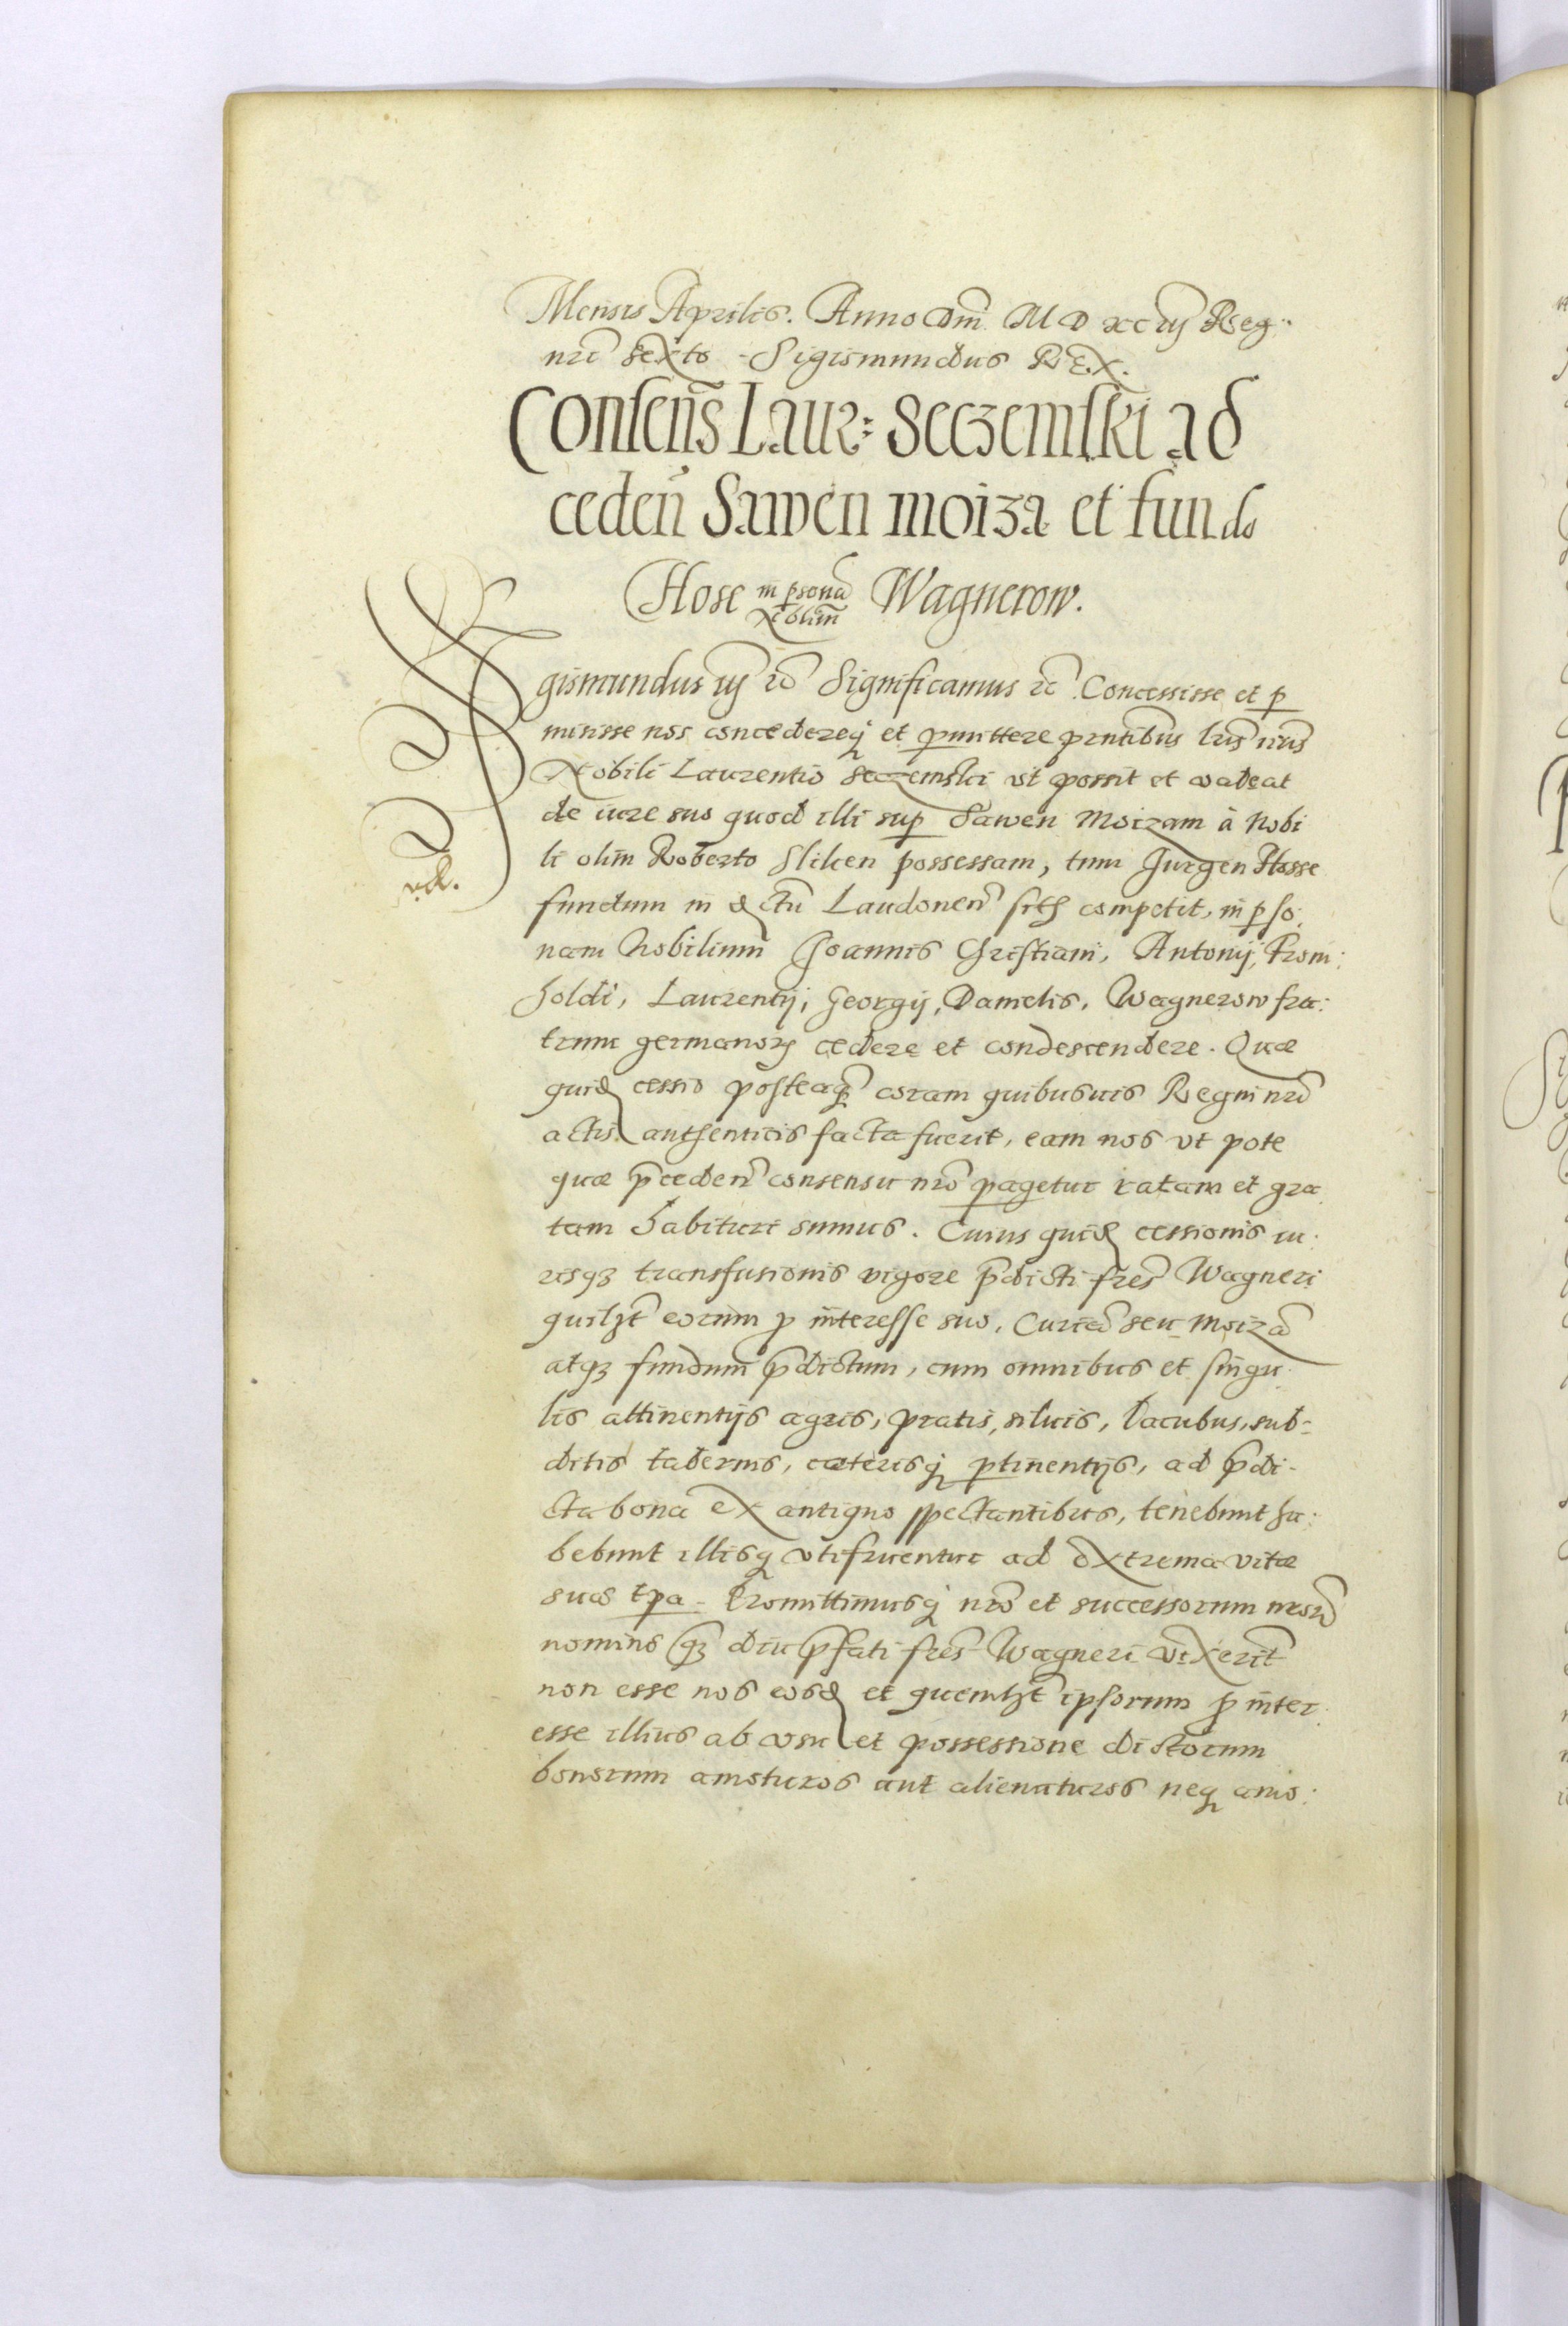 Mensis Aprilis. Anno Dm̃ M D xc iij Reg:
nrĩ sexto Sigismundus REX.
Consen̄s Laur: Seczemſki ad
ceden̄ Sawen moiza et fundo
Hose in ꝑsonã Nobiliũ Wagnerow.
Sigismundus iij ꝛc̃ Significamus ꝛc̃ Concessisse et ꝑ
misisse nos concedereq̨ et ꝑmittere pn̄tibus lrĩs nr̃is
Nobili Laurentio Seczemski vt possit et valeat
de iure suo quod illi suꝑ Sawen Moizam à Nobi
li olim Roberto Sliken possessam, tum Jurgen Hosse
fundum in dctũ Laudonen̄ sitũ competit, in ꝑso:
nam Nobilium Joannis Christiani, Antonij, From:
holdi, Laurentij, Georgij, Danielis, Wagnerow fra:
trum germanorũ cedere et condescendere. Quæ
quid cessio posteaq̃ coram quibusuis Regni nrĩ
actis authenticis facta fuerit, eam nos vt pote
quæ p̃ceden̄ consensu nrõ ꝑagetur ratam et gra
tam habituri sumus. Cuius quid cessionis iu:
risqȝ transfusionis vigore p̃dicti frẽs Wagneri
quilzt̃ eorum ꝑ interesse suo, Curiã seu Moizã
atqȝ fundum p̃dictum, cum omnibus et singu:
lis attinentijs agris, pratis, siluis, lacubus, sub-
ditis tabernis, cæterisq̨ ꝑtinentijs, ad p̃di-
cta bona ex antiquo spectantibus, tenebunt ha:
bebunt illisq̨ vtifruentur ad extrema vitæ
suæ tꝑa. Promittimusq̨ nrõ et successorum nrõrũ
nomine qȝ diu p̃fati frẽs Wagneri vixerit̃
non esse nos eosd et quemlzt̃ ipsorum ꝑ inter:
esse illius ab vsu et possessione dictorum
bonorum amoturos aut alienaturos neq̨ amo: